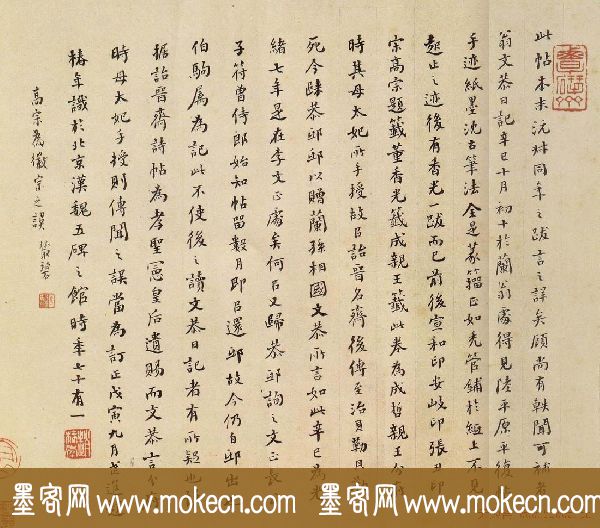 此帖本末沅叔同年之跋言之詳矣顧尚有軼聞可補者
翁文恭日記辛巳十月初十於蘭翁處得見陸平原平復帖
手迹紙墨沈古筆法全是篆籀正如禿管鋪於紙上不見
起止之迹後有香光一跋而已前後宣和印安岐印張丑印
宋高宗題籤董香光籤成親王籤此卷為成哲親王分府
時其母太妃所手授故以詒晉名齋後傳至治貝勒貝勒
死今歸恭邸邸以贈蘭孫相國文恭所言如此辛巳為光
緒七年是在李文正處矣何以又歸恭邸詢之文正長
子符曾侍郎始知帖留數月即以還邸故今仍自邸出
伯駒屬為記此不使後之讀文恭日記者有所疑也
據詒晉齋詩帖為孝聖憲皇后遺賜而文恭言分府
時母太妃手授則傳聞之誤當為訂正戊寅九月武進趙
椿年識於北京漢魏五碑之館時年七十有一
高宗為徽宗之誤
墨客网 www.mokecn.com 墨客网 www.mokecn.com